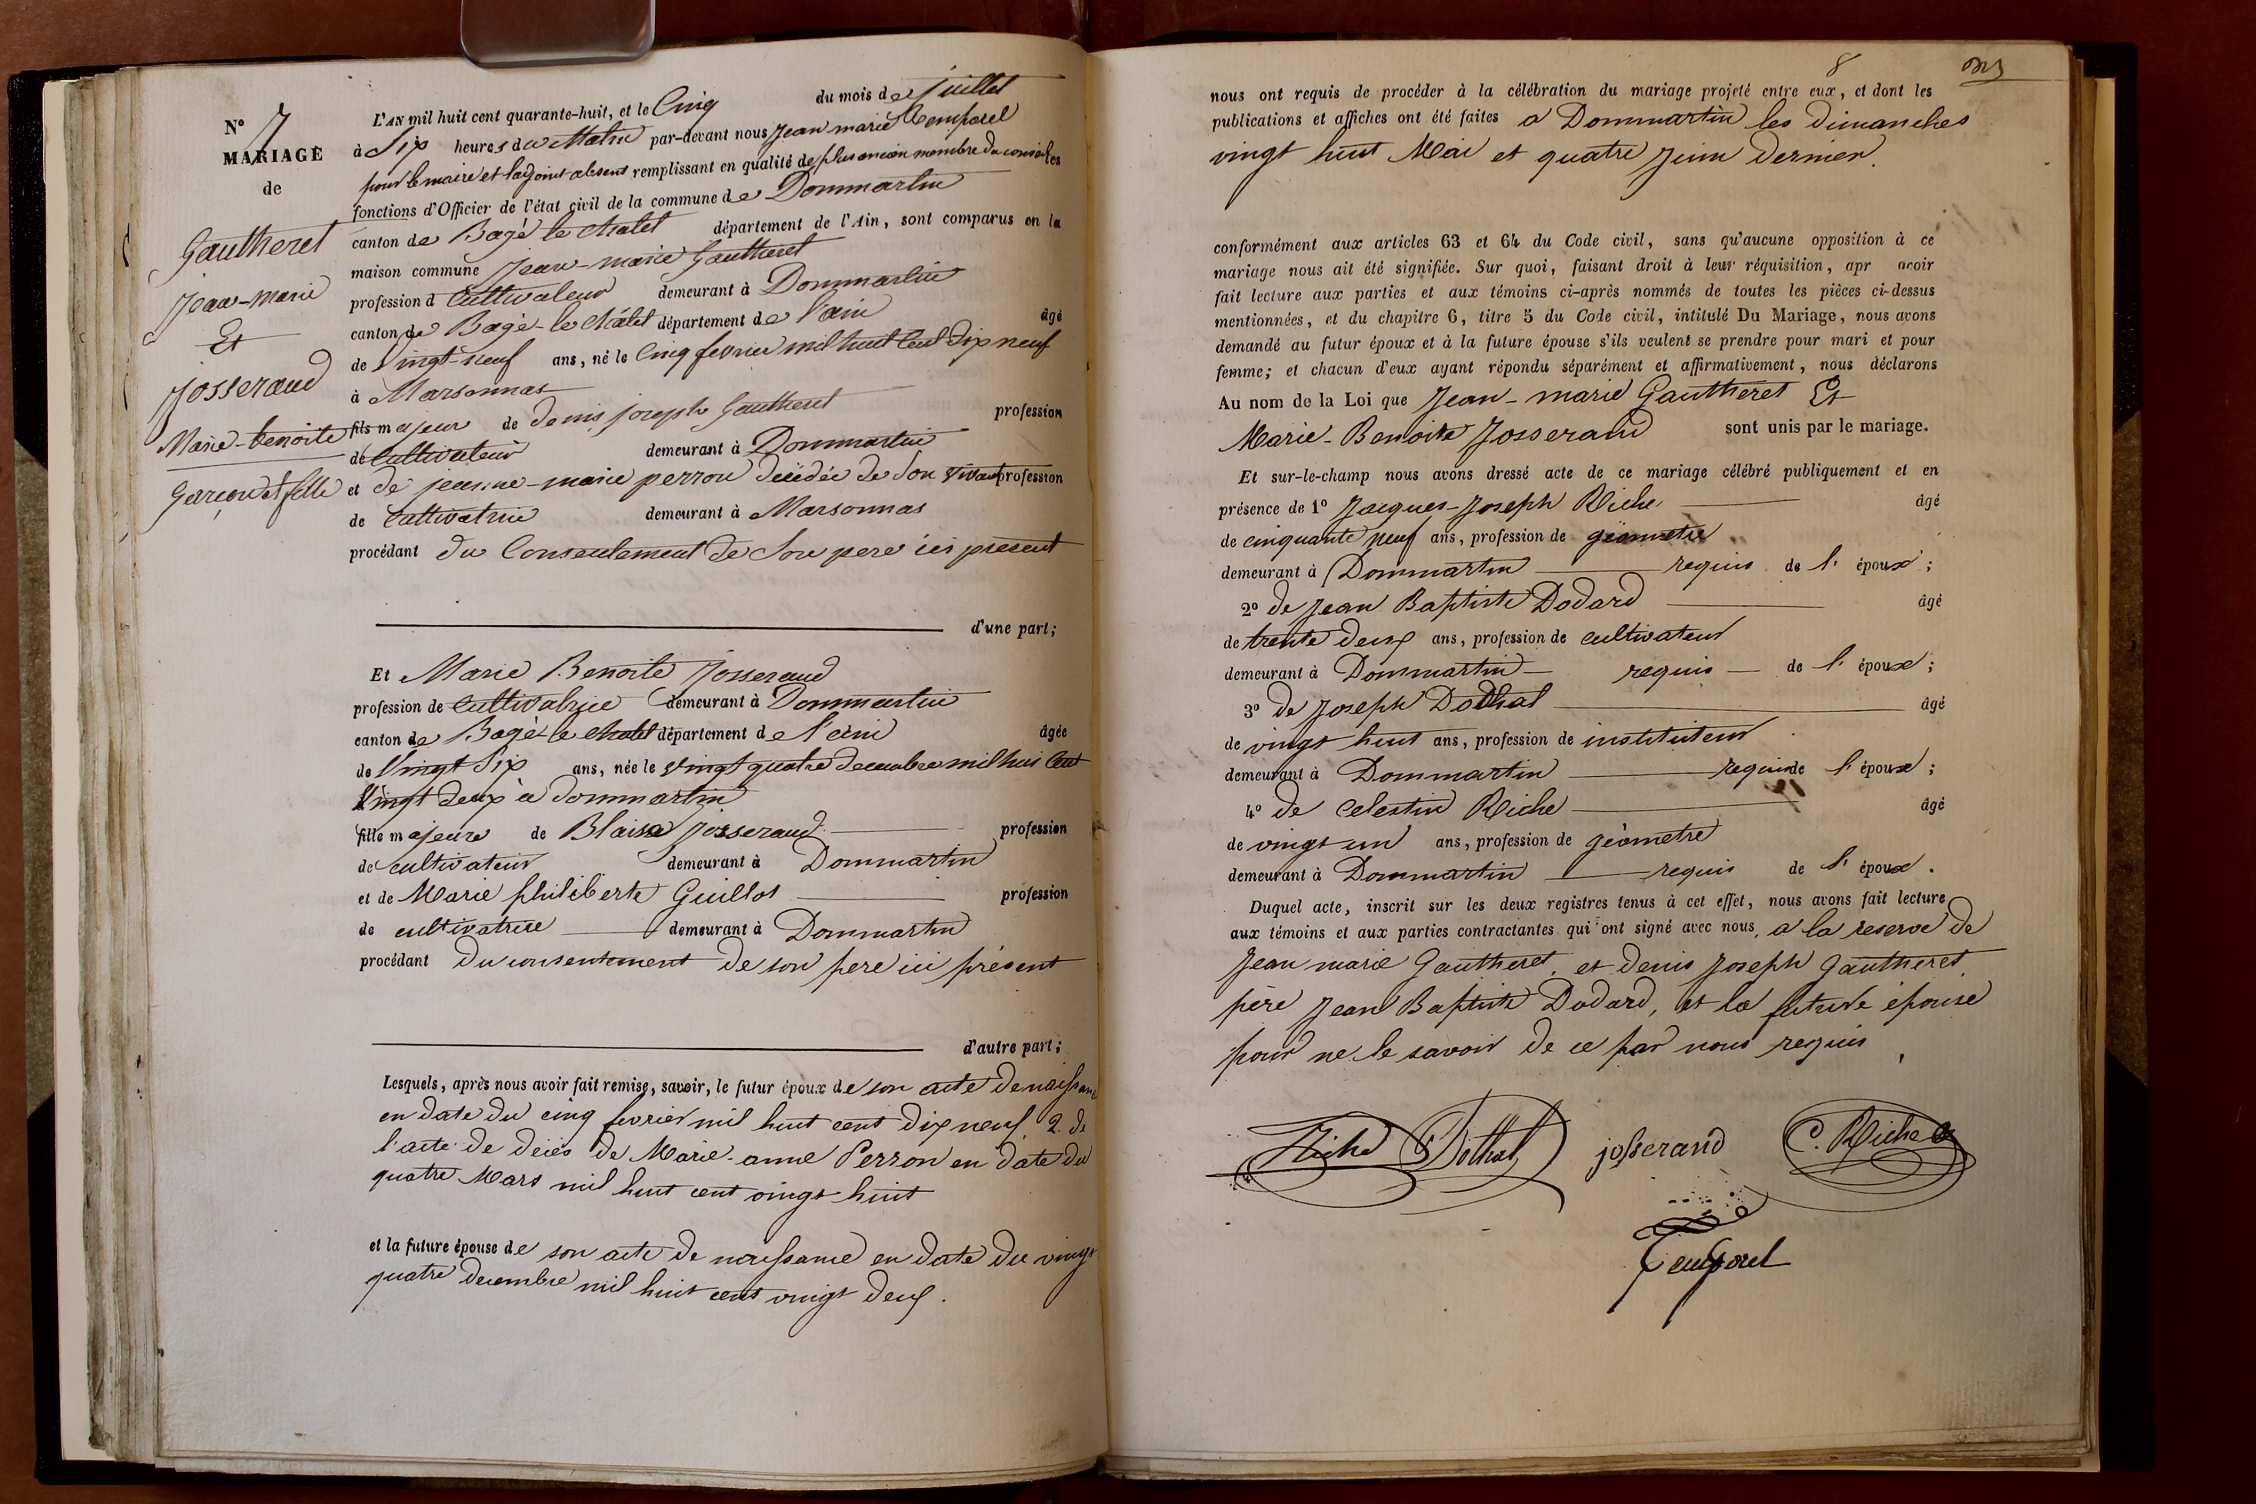 N° 7
MARIAGE
de
Gautheret
Jean-Marie
Et
Josserand
Marie-Benoite
Garçon et fille
L'AN mil huit cent quarante-huit, et le Cinq du mois de juillet
à Six heures du Matin par-devant nous Jean marie Temporel
pour le maire et l'adjoint absent remplissant en qualité de plus ancien membre du conseil les
fonctions d'Officier de l'état civil de la commune de Dommartin
canton de Bagé le chatel département de l'Ain, sont comparus en la
maison commune Jean-marie Gautheret
profession d Cultivateur demeurant à Dommartin
canton de Bagé-le Châtel département de l'ain âgé
de Vingt-neuf ans, né le Cinq fevrier mil huit Cent Dix neuf
à Marsonnas
fils majeur de denis joseph Gautheret profession
de Cultivateur demeurant à Dommartin
et de jeanne-marie perron décédée de Son vivant profession
de Cultivatrice demeurant à Marsonnas
procédant du Consentement de Son pere ici présent
d'une part;
Et Marie Benoite Josserand
profession de Cultivatrice demeurant à Dommartin
canton de Bagé-le Chatel département de l'ain âgée
de Vingt Six ans, née le vingt quatre decembre mil huit Cent
Vingt deux à Dommartin
fille majeure de Blaise Josserand profession
de cultivateur demeurant à Dommartin
et de Marie philiberte Guillot profession
de cultivatrice demeurant à Dommartin
procédant du consentement de son pere ici présent
d'autre part;
Lesquels, après nous avoir fait remise, savoir, le futur époux de son acte de naissance
en date du cinq fevrier mil huit cent dix neuf 2. de
l'acte de décès de Marie-anne Perron en date du
quatre Mars mil huit cent vingt huit
et la future épouse de son acte de naissance en date du vingt
quatre decembre mil huit cent vingt deux.
8
nous ont requis de procéder à la célébration du mariage projeté entre eux, et dont les
publications et affiches ont été faites a Dommartin les dimanches
vingt huit Mai et quatre Juin dernier.
conformément aux articles 63 et 64 du Code civil, sans qu'aucune opposition à ce
mariage nous ait été signifiée. Sur quoi, faisant droit à leur réquisition, apr avoir
fait lecture aux parties et aux témoins ci-après nommés de toutes les pièces ci-dessus
mentionnées, et du chapitre 6, titre 5 du Code civil, intitulé Du Mariage, nous avons
demandé au futur époux et à la future épouse s'ils veulent se prendre pour mari et pour
femme; et chacun d'eux ayant répondu séparément et affirmativement, nous déclarons
Au nom de la Loi que Jean-marie Gautheret Et
Marie-Benoite Josserand sont unis par le mariage.
Et sur-le-champ nous avons dressé acte de ce mariage célébré publiquement et en
présence de 1° Jacques-Joseph Riche âgé
de cinquante neuf ans, profession de géometre
demeurant à Dommartin requis de l' époux;
2° de Jean Baptiste Dodard âgé
de trente deux ans, profession de cultivateur
demeurant à Dommartin requis de l' époux;
3° de Joseph Dothal âgé
de vingt huit ans, profession de instituteur
demeurant à Dommartin requis de l' époux;
4° de Celestin Riche âgé
de vingt un ans, profession de géometre
demeurant à Dommartin requis de l' époux.
Duquel acte, inscrit sur les deux registres tenus à cet effet, nous avons fait lecture
aux témoins et aux parties contractantes qui ont signé avec nous, a la reserve de
Jean marie Gautheret, et denis Joseph Gautheret,
père Jean Baptiste Dodard, et la future épouse
pour ne le savoir de ce par nous requis
Riche Dothal josserand C. Riche
Temporel